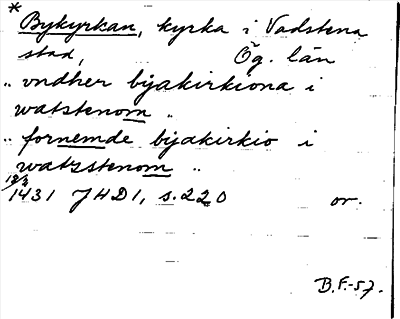 * Bykyrkan, kyrka i Vadstena
stad, Ög. län
„ vndher bijakirkiona i
watstenom „
„ fornemde bijakirkio i
watzstenom „
13/3
1431 JHD1, s. 220 or.
B.F.-57.